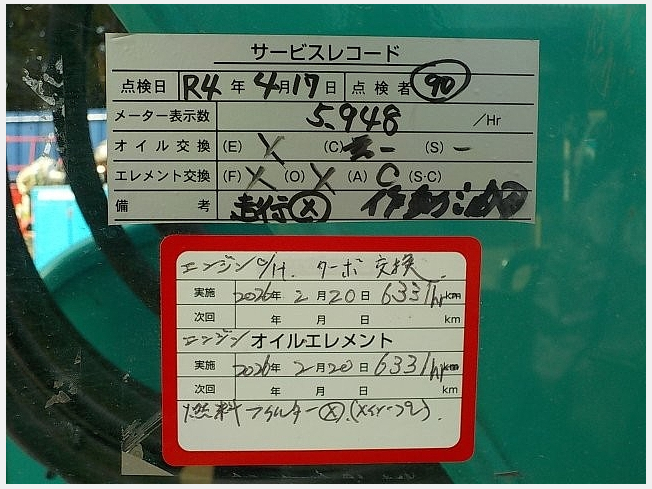 サービスレコード
点検日 R4年4月17日 点検者 90
メーター表示数 5,948 /Hr
オイル交換 (E) X (C) - (S) -
エレメント交換 (F) X (O) X (A) C (S·C)
備考 走行Ⓧ 作動油
エンジンO/H. ターボ 交換.
実施 2026年 2月20日 6331hr km
次回 年 月 日 km
エンジン オイルエレメント
実施 2026年 2月20日 6331hr km
次回 年 月 日 km
燃料フィルターⓍ.(メイン-プレ).